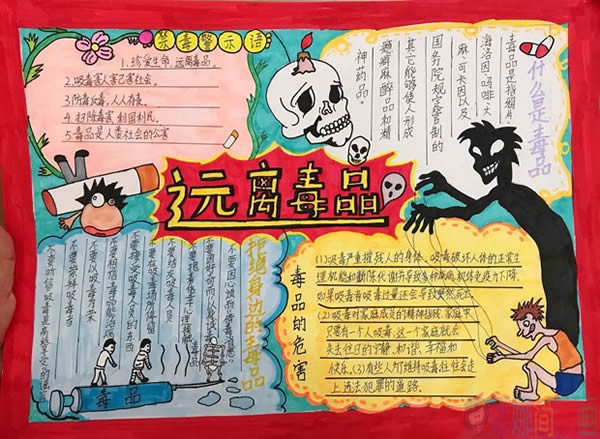 禁毒警示语
1.珍爱生命,远离毒品。
2.吸毒害人害己害社会。
3.防毒反毒,人人有责。
4.扫除毒害,利国利民。
5.毒品是人类社会的公害
什么是毒品
毒品是指鸦片、
海洛因、吗啡、大
麻、可卡因以及
国务院规定管制的
其它能够使人形成
瘾癖麻醉品和精
神药品。
远离毒品
拒绝身边的毒品
不要因心烦而"借毒消愁"
不要因好奇而以身试毒
不要抱着侥幸心理接触毒品
不要结交吸毒人员
不要在吸毒场所停留
不要接受吸毒人员的东西
不要相信毒品能治病
不要以吸毒为荣
不要崇拜吸毒者
不要听信吸毒是高级享受的谣言
毒品
毒品的危害
(1)吸毒严重摧残人的身体,吸毒破坏人体的正常生
理机能和新陈代谢并导致多种疾病,机体免疫力下降,
如果吸毒者吸毒过量还会导致突然死亡
(2)吸毒对家庭成员的精神摧残,家庭中
只要有一个人吸毒,这个家庭就会
失去往日的宁静、和谐、幸福和
快乐。(3)有些人为维持吸毒往往会走
上违法犯罪的道路。